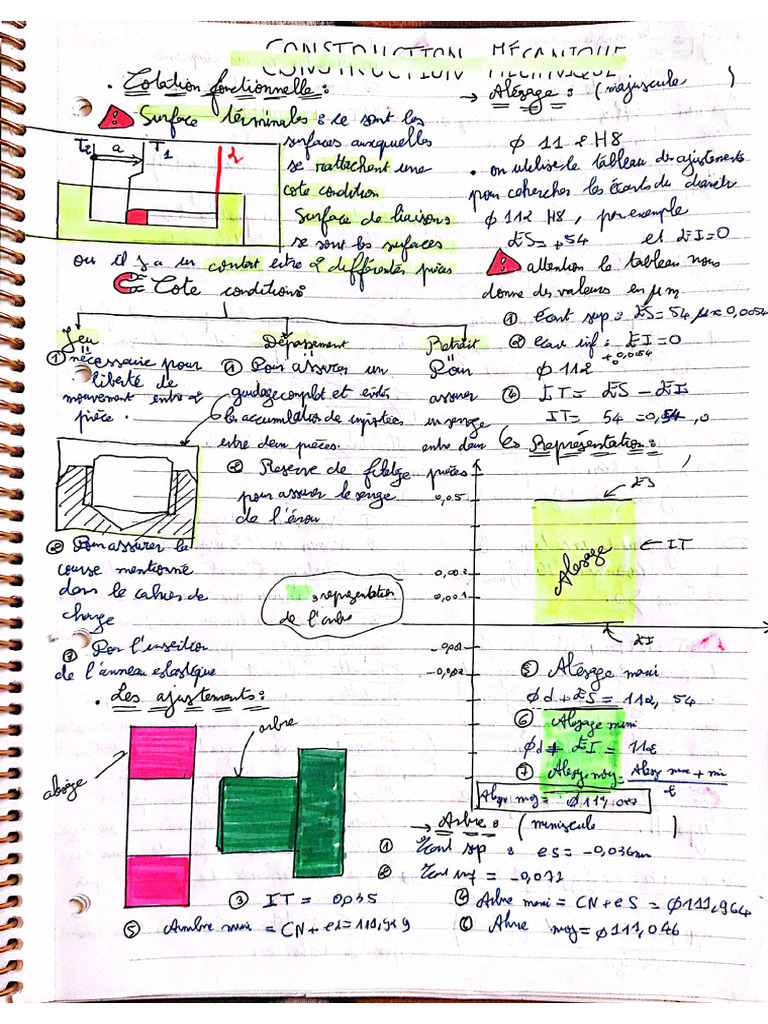 CONSTRUCTION MÉCANIQUE
• Cotation fonctionnelle :
Surface términales : ce sont les
surfaces auxquelles
se rattachent une
cote condition
Surface de liaisons
se sont les surfaces
ou il y a un contact entre 2 différentes pièces
T2 a T1 2
Cote conditions
Jeu
① nécessaire pour
liberté de
mouvement entre 2
pièce.
② Pour assurer la
course mentionné
dans le cahier de
charge
③ Pour l'insertion
de l'anneau elastique
Dépassement
① Pour assurer un
guidage complet et
les accumulation de
entre deux pièces.
② Reserve de filetage
pour assurer le serrage
de l'écrou
Retrait
Pour
assurer
un serrage
entre deux
pièces
: representation
de l'arbre
• Les ajustements :
alésage
arbre
→ Alésage : (majuscule )
ϕ 112 H8
• on utilise le tableau des ajustements
pour cohercher les écarts du
ϕ 112 H8, par exemple
ES = +54 et EI = 0
attention le tableau nous
donne des valeurs en μm
① Ecart sup : ES = 54 μ x 0,0054
② Ecar inf : EI = 0
ϕ 112 +0,0054
④ IT = ES - EI
IT = 54 =
Représentation :
0,05
0,002
0,001
-0,001
-0,002
ES
Alesage
← IT
EI
⑤ Alésage maxi
ϕ d + ES = 112, 54
⑥ Alésage mini
ϕ d + EI = 112
⑦ Alesg moy = Alesg max + mi
2
Alsg moy = ϕ 111,027
→ Arbre : (miniscule )
① Ecart sup : es = -0,036mm
② Ecart inf = -0,072
③ IT = 0,035
④ Arbre maxi = CN + eS = ϕ 111,964
⑤ Arnbre mini = CN + ei = 111,929
⑥ Abre moy = ϕ 111,046